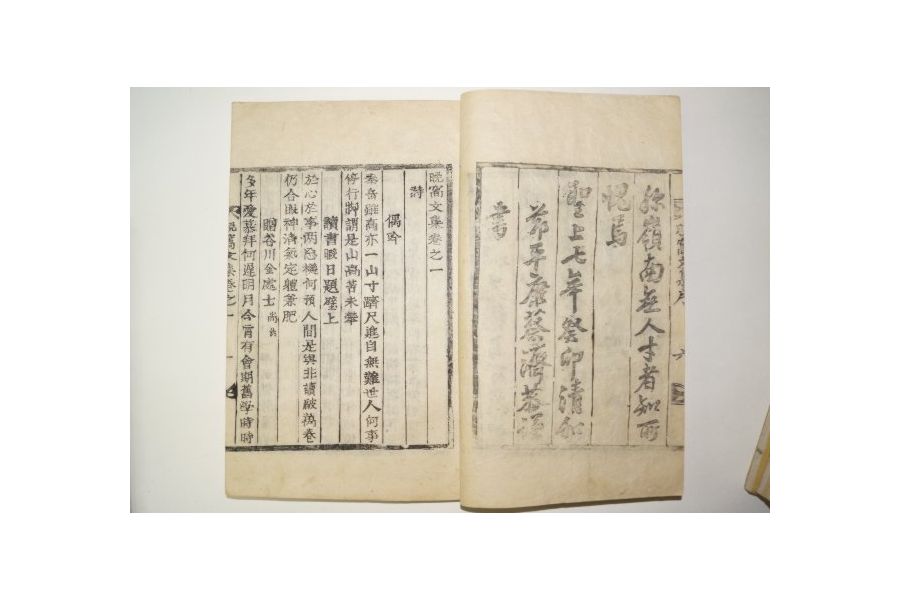 嶺南無人才者知所
愧焉
聖上七年癸卯清和
節平康蔡濟恭謹
書
晩窩文集卷之一
詩
偶吟
泰岳雖高亦一山寸躋尺進自無難世人何事
停行脚謂是山高苦未攀
讀書暇日題壁上
於心左事兩忘機何預人間是與非讀破萬卷
仍合眼神淸氣定軆兼肥
贈谷川金處士尙
多年愛慕拜何遲明月今宵有會期舊學時時
晩窩文集卷之一 一